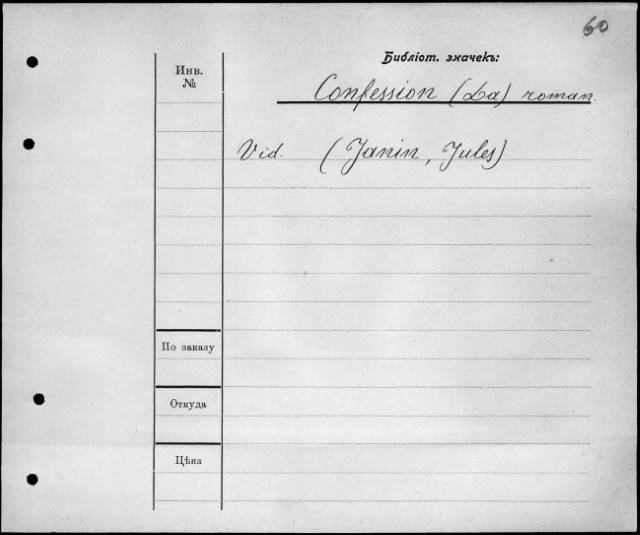 60
Библіот. значекъ:
Инв.
№
Confession (La) roman.
Vid. (Janin, Jules)
По заказу
Откуда
Цѣна